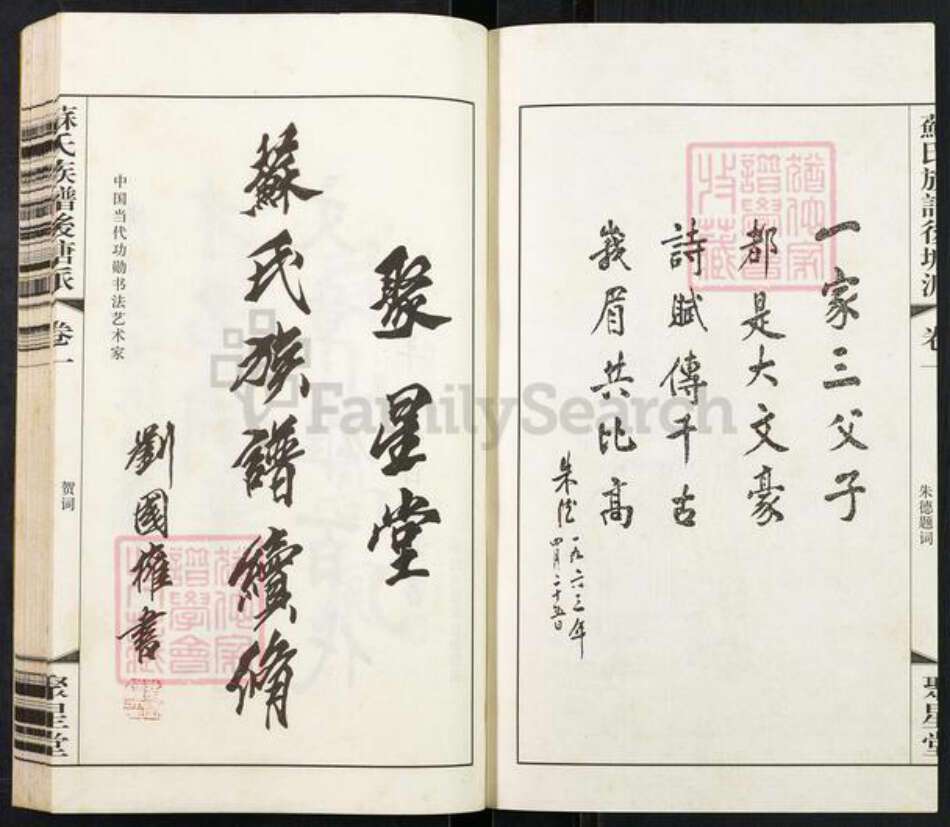 蘇氏族譜後塘派
卷一
朱德题词
聚星堂
一家三父子
都是大文豪
詩賦傳千古
峩眉共比高
朱德
一九六三年
四月二十五日
聚星堂
蘇氏族譜續脩
中国当代功勋书法艺术家
劉國權書
蘇氏族譜後塘派
卷一
贺词
聚星堂
FamilySearch